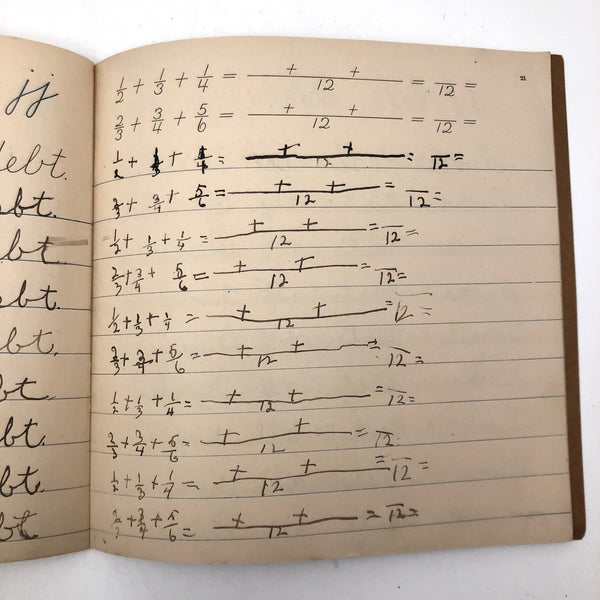 jj
debt.
ebt.
ebt
ebt.
bt.
bt.
bt.
bt.
bt.
bt
21
1/2 + 1/3 + 1/4 = + + /12 = /12 =
2/3 + 3/4 + 5/6 = + + /12 = /12 =
1/2 + 1/3 + 1/4 = + + /12 = /12 =
2/3 + 3/4 + 5/6 = + + /12 = /12 =
1/2 + 1/3 + 1/4 = + + /12 = /12 =
2/3 + 3/4 + 5/6 = + + /12 = /12 =
1/2 + 1/3 + 1/4 = + + /12 = /12 =
2/3 + 3/4 + 5/6 = + + /12 = /12 =
1/2 + 1/3 + 1/4 = + + /12 = /12 =
2/3 + 3/4 + 5/6 = + + /12 = /12
1/2 + 1/3 + 1/4 = + + /12 = /12 =
2/3 + 3/4 + 5/6 = + + /12 = /12 =